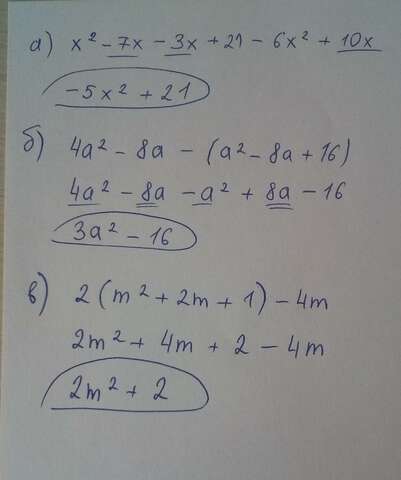 а) x² - 7x - 3x + 21 - 6x² + 10x
-5x² + 21
б) 4a² - 8a - (a² - 8a + 16)
4a² - 8a - a² + 8a - 16
3a² - 16
в) 2(m² + 2m + 1) - 4m
2m² + 4m + 2 - 4m
2m² + 2